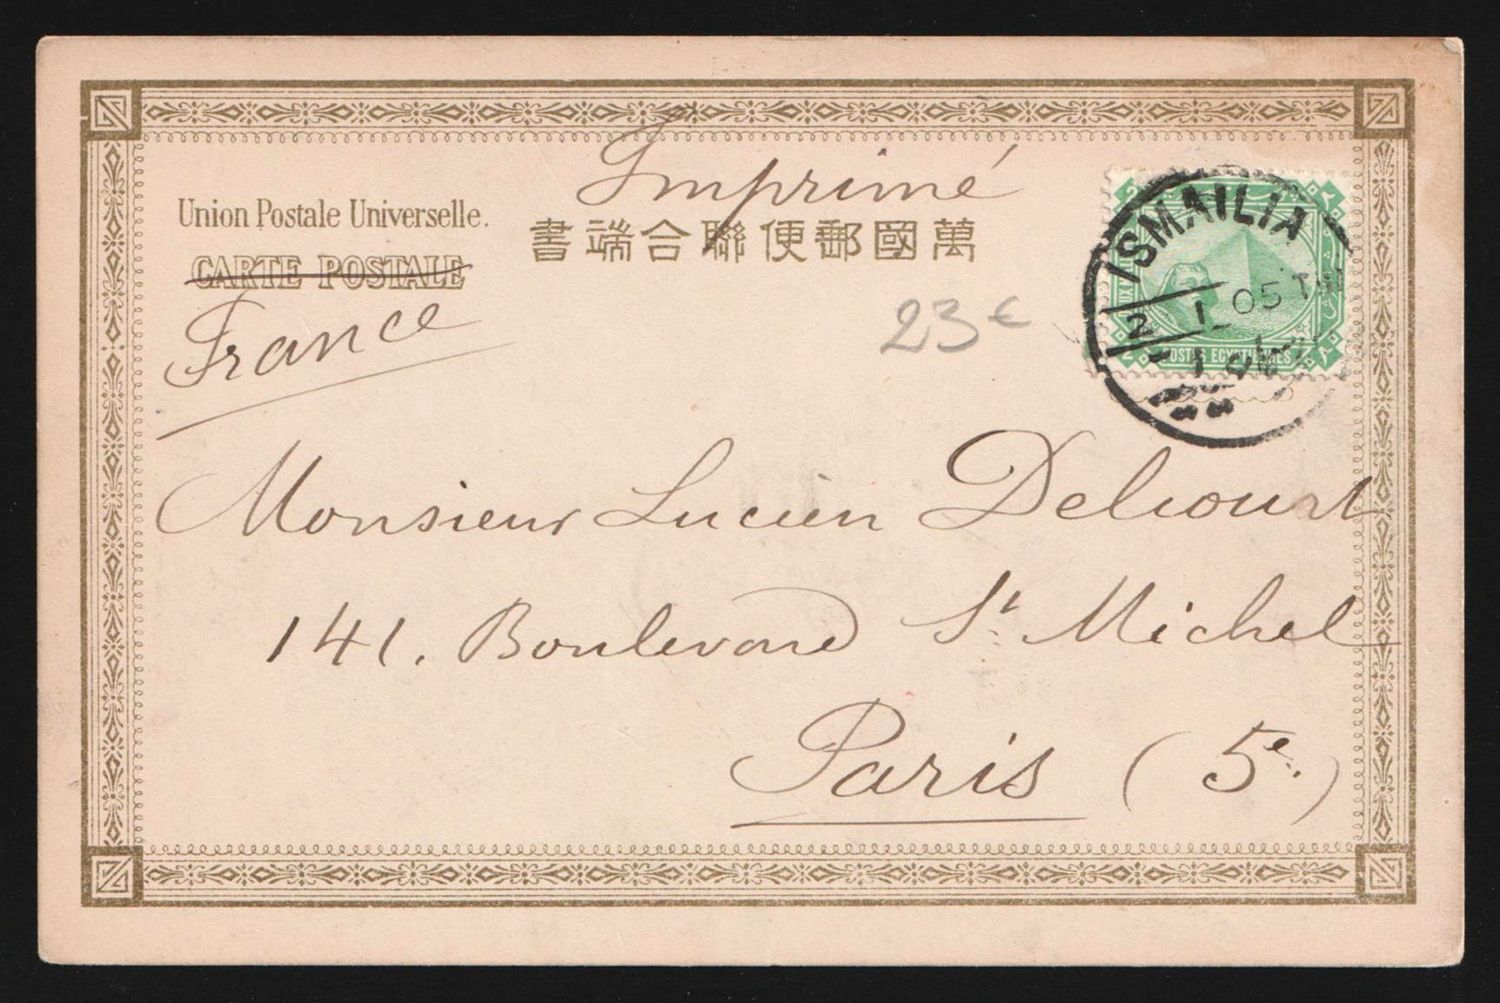 Imprimé
Union Postale Universelle.
書端合聯便郵國萬
CARTE POSTALE
France
23€
ISMAILIA
2 I 05 TW
POSTES EGYPTIENNES
Monsieur Lucien Delcourt
141. Boulevard St. Michel
Paris (5e.)